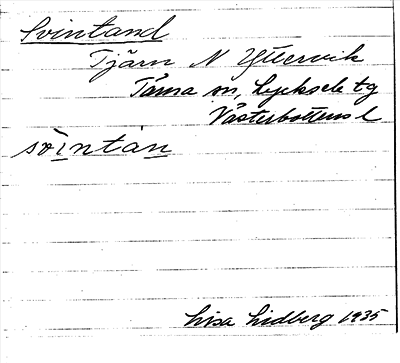 Svintand
Tjärn N Yttervik
Tärna sn, Lycksele tg
Västerbottens l
svintan
Lisa Lidberg 1935